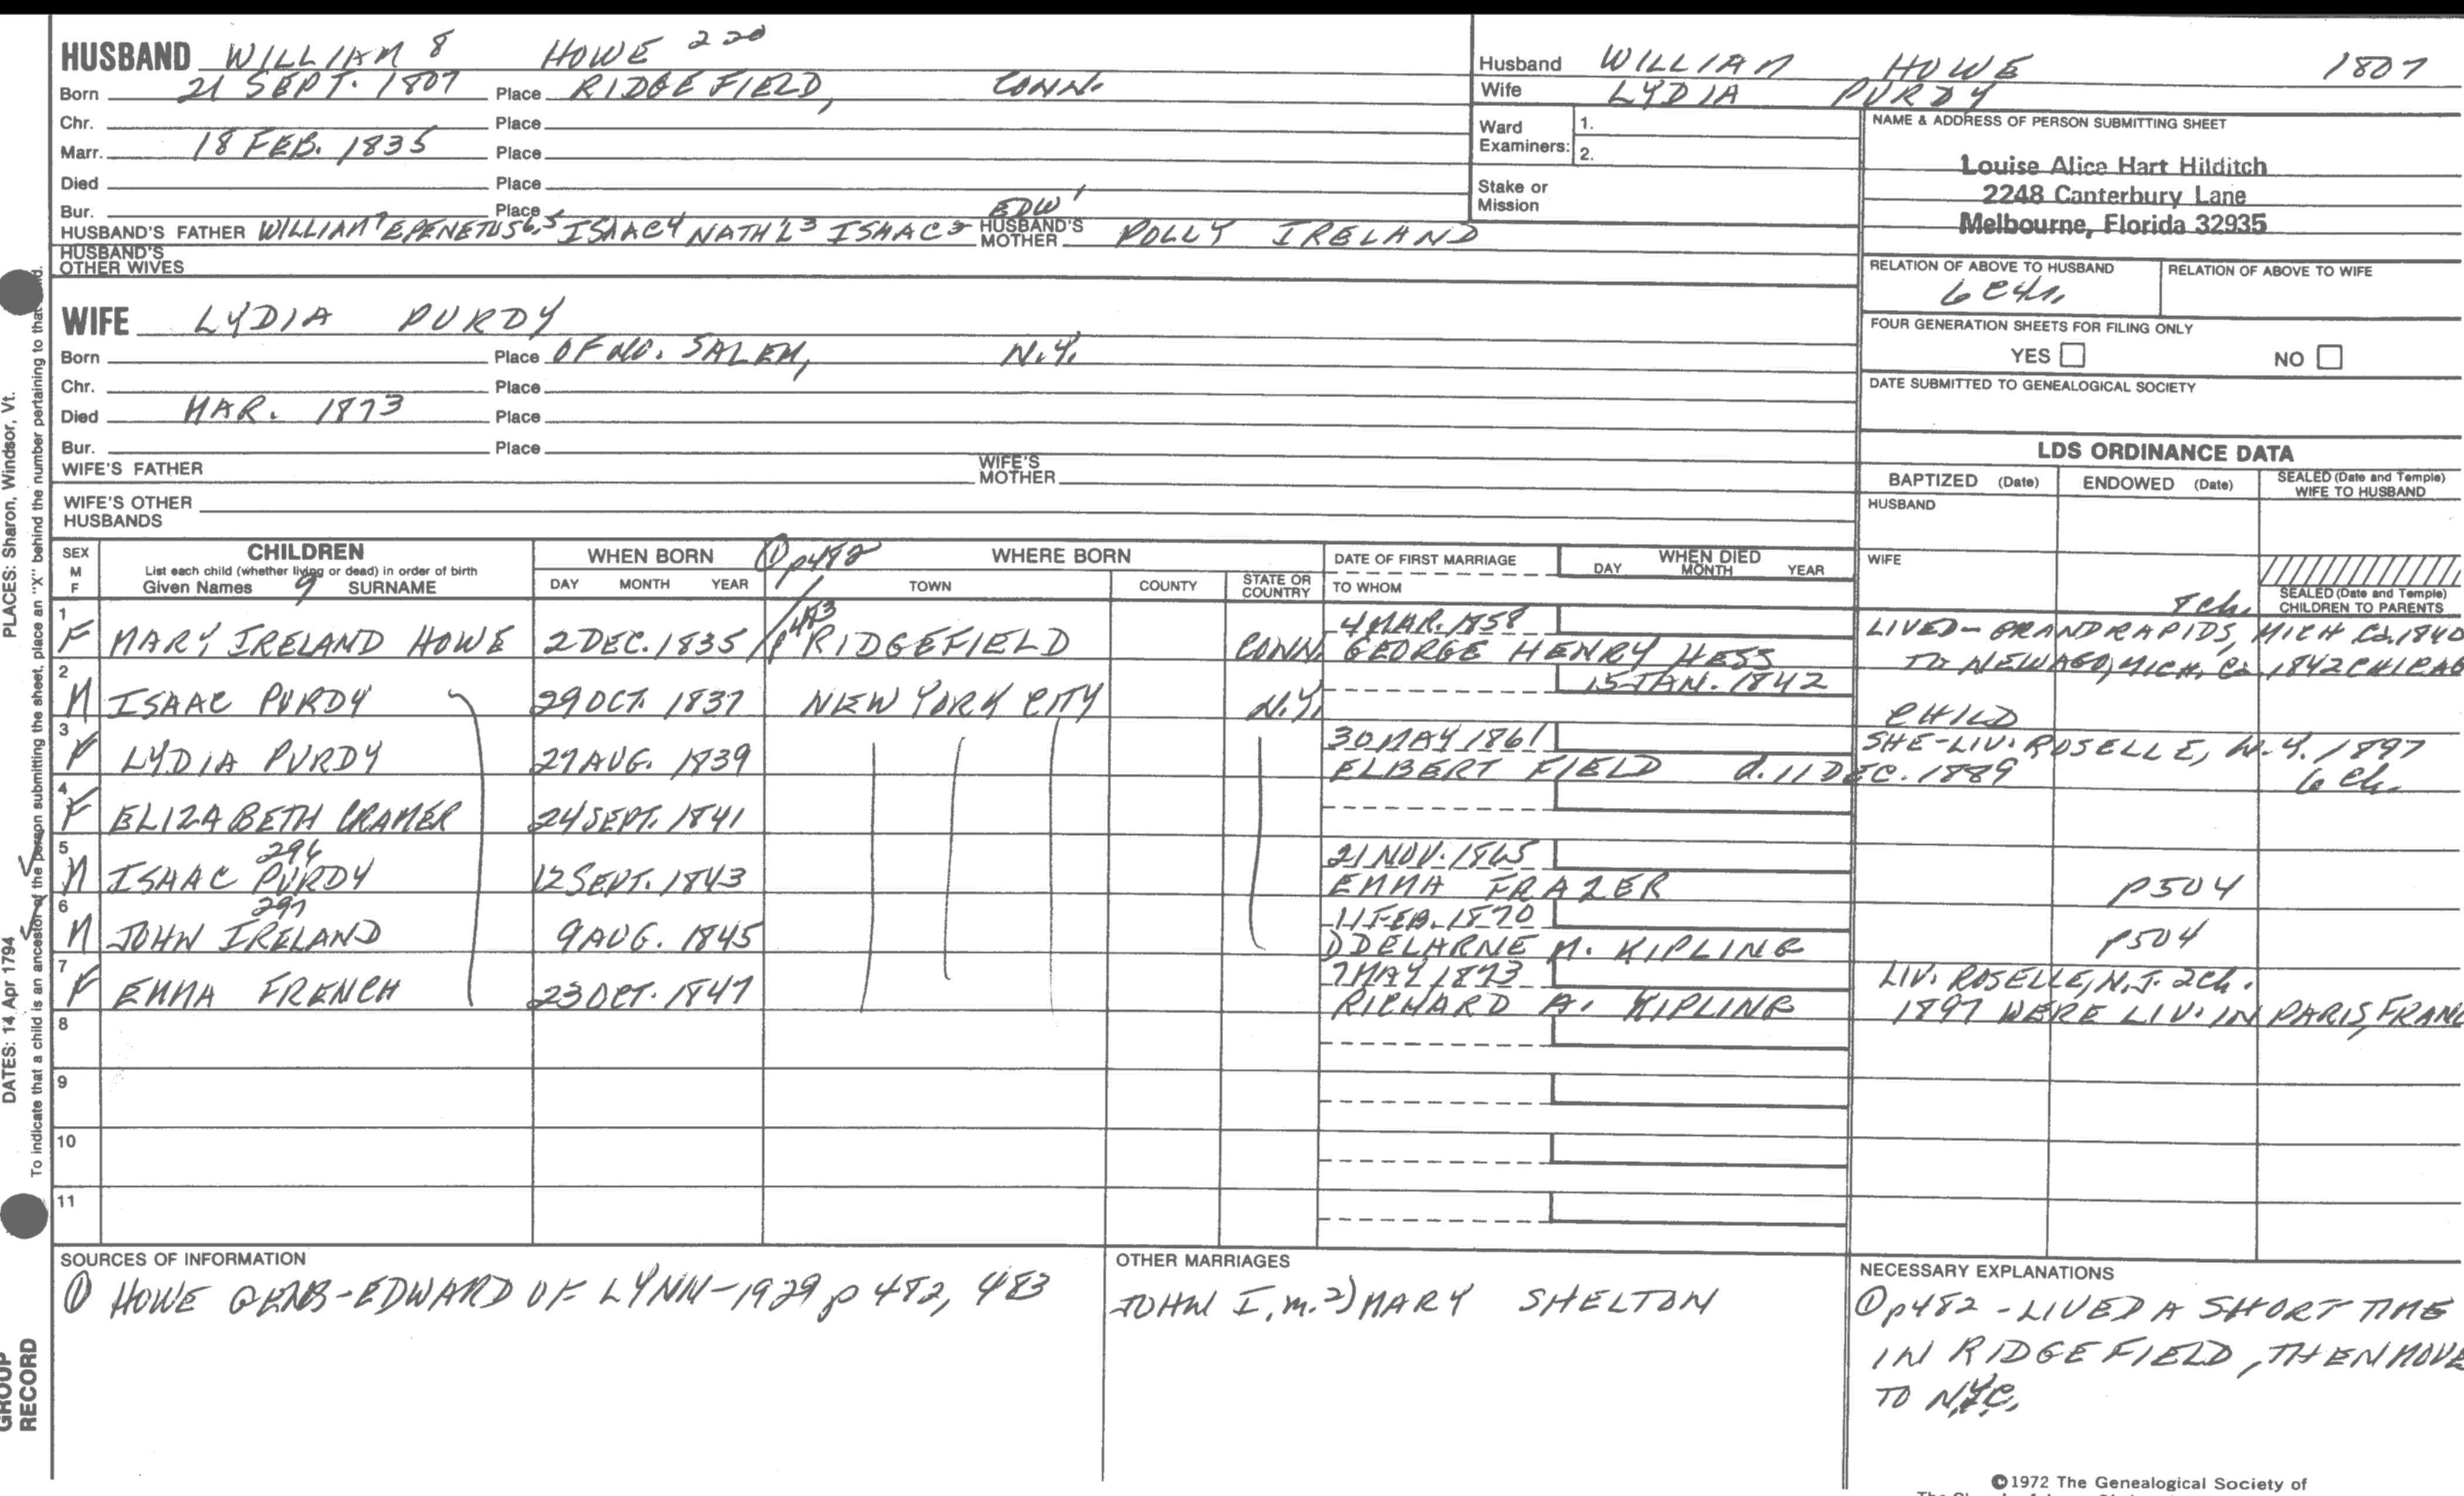 HUSBAND WILLIAM 8 HOWE 220
Born 21 SEPT. 1807 Place RIDGEFIELD, CONN.
Chr. Place
Marr. 18 FEB. 1835 Place
Died Place
Bur. Place
HUSBAND'S FATHER WILLIAM 7 EPENETUS 6,5 ISAAC 4 NATH'L 3 ISAAC 2 EDW 1 HUSBAND'S MOTHER POLLY IRELAND
HUSBAND'S OTHER WIVES
WIFE LYDIA PURDY
Born Place OF NO. SALEM, N.Y.
Chr. Place
Died MAR. 1873 Place
Bur. Place
WIFE'S FATHER WIFE'S MOTHER
WIFE'S OTHER HUSBANDS
Husband WILLIAM HOWE 1807
Wife LYDIA PURDY
Ward Examiners: 1.
2.
Stake or Mission
NAME & ADDRESS OF PERSON SUBMITTING SHEET
Louise Alice Hart Hilditch
2248 Canterbury Lane
Melbourne, Florida 32935
RELATION OF ABOVE TO HUSBAND RELATION OF ABOVE TO WIFE
FOUR GENERATION SHEETS FOR FILING ONLY
YES NO
DATE SUBMITTED TO GENEALOGICAL SOCIETY
LDS ORDINANCE DATA
BAPTIZED (Date) ENDOWED (Date) SEALED (Date and Temple) WIFE TO HUSBAND
HUSBAND
WIFE
SEALED (Date and Temple) CHILDREN TO PARENTS
SEX M F CHILDREN WHEN BORN ① p482 WHERE BORN DATE OF FIRST MARRIAGE WHEN DIED
List each child (whether living or dead) in order of birth
Given Names 9 SURNAME DAY MONTH YEAR TOWN COUNTY STATE OR COUNTRY TO WHOM DAY MONTH YEAR
1 F MARY IRELAND HOWE 2 DEC. 1835 p483 RIDGEFIELD CONN. 4 MAR. 1858 GEORGE HENRY HESS
LIVED - GRAND RAPIDS, MICH Ca. 1840
TO NEWAGO, MICH. Ca. 1842 CHICAG
2 M ISAAC PURDY 29 OCT. 1837 NEW YORK CITY N.Y. 15 JAN. 1842
CHILD
3 F LYDIA PURDY 27 AUG. 1839 30 MAY 1861 ELBERT FIELD d. 11 DEC. 1889
SHE - LIV. ROSELLE, N.Y. 1897
6 ch.
4 F ELIZABETH CRAMER 24 SEPT. 1841
5 M ISAAC PURDY 296 12 SEPT. 1843 21 NOV. 1865 EMMA FRAZER p504
6 M JOHN IRELAND 297 9 AUG. 1845 11 FEB. 1870 1) DELARNE M. KIPLING p504
7 F EMMA FRENCH 23 OCT. 1847 7 MAY 1873 RICHARD A. KIPLING
LIV. ROSELLE, N.J. 2 ch.
1897 WERE LIV. IN PARIS, FRANC
8
9
10
11
SOURCES OF INFORMATION
① HOWE GENS - EDWARD OF LYNN - 1929 p 482, 483
OTHER MARRIAGES
JOHN I. m. 2) MARY SHELTON
NECESSARY EXPLANATIONS
① p482 - LIVED A SHORT TIME
IN RIDGEFIELD, THEN MOVE
TO N.Y.C.
©1972 The Genealogical Society of
PLACES: Sharon, Windsor, Vt.
DATES: 14 Apr 1794
To indicate that a child is an ancestor of the person submitting the sheet, place an "X" behind the number pertaining to that
GROUP
RECORD